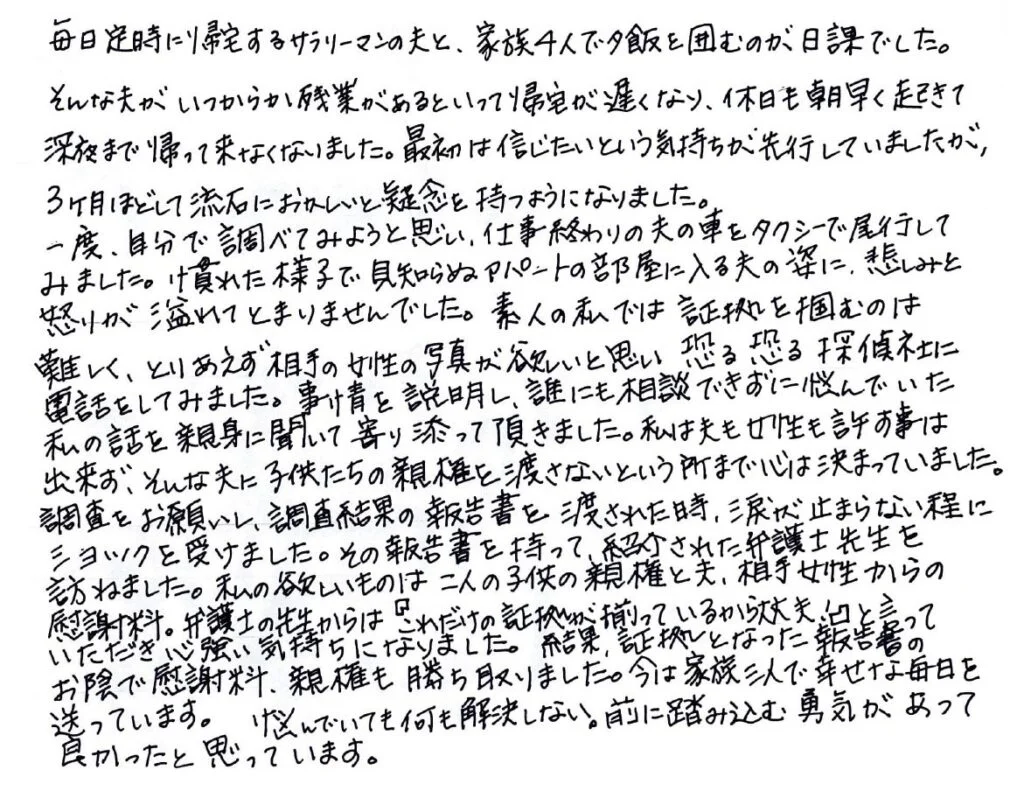 毎日定時に帰宅するサラリーマンの夫と、家族4人で夕飯を囲むのが、日課でした。
そんな夫がいつからか残業があるといって帰宅が遅くなり、休日も朝早く起きて
深夜まで帰って来なくなりました。最初は信じたいという気持ちが先行していましたが、
3ヶ月ほどして流石におかしいと疑念を持つようになりました。
一度、自分で調べてみようと思い、仕事終わりの夫の車をタクシーで尾行して
みました。慣れた様子で見知らぬアパートの部屋に入る夫の姿に、悲しみと
怒りが溢れてとまりませんでした。素人の私では証拠を掴むのは
難しく、とりあえず相手の女性の写真が欲しいと思い恐る恐る探偵社に
電話をしてみました。事情を説明し、誰にも相談できずに悩んでいた
私の話を親身に聞いて寄り添って頂きました。私は夫も女性も許す事は
出来ず、そんな夫に子供たちの親権を渡さないという所まで心は決まっていました。
調査をお願いし、調査結果の報告書を渡された時、涙が止まらない程に
ショックを受けました。その報告書を持って、紹介された弁護士先生を
訪ねました。私の欲しいものは二人の子供の親権と夫、相手女性からの
慰謝料。弁護士の先生からは『これだけの証拠が揃っているから大丈夫。』と言って
いただき心強い気持ちになりました。結果、証拠となった報告書の
お陰で慰謝料、親権も勝ち取りました。今は家族三人で幸せな毎日を
送っています。 悩んでいても何も解決しない。前に踏み込む勇気があって
良かったと思っています。